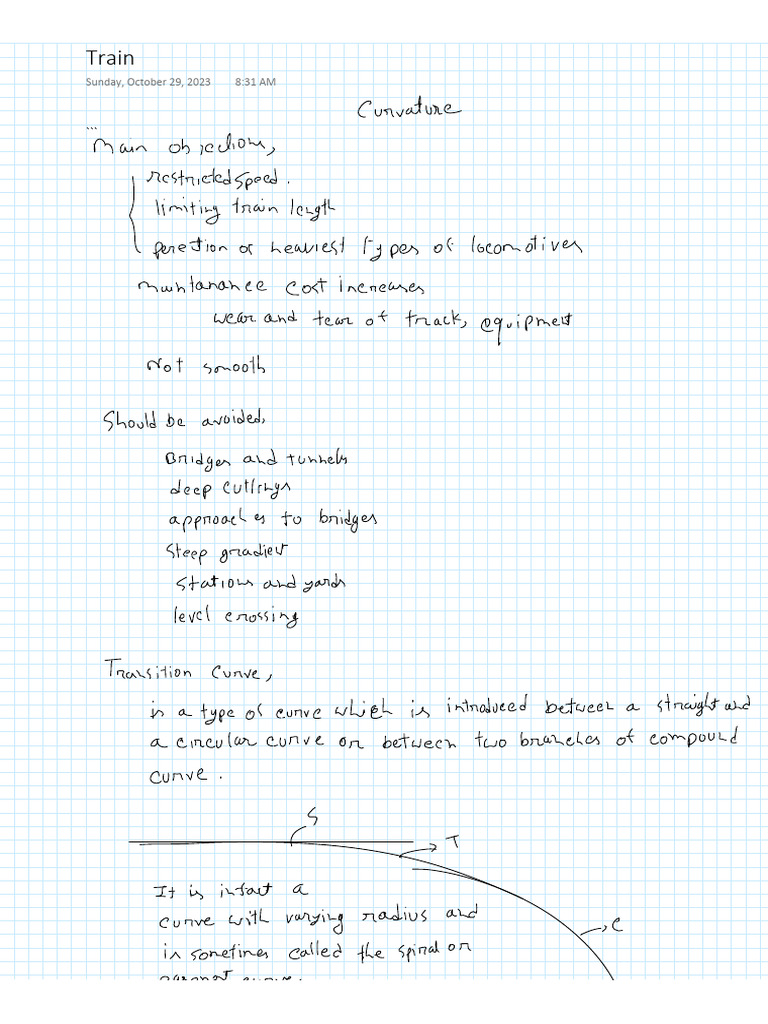 Train
Sunday, October 29, 2023 8:31 AM
Curvature
...
Main objections,
restricted speed.
limiting train length
of heaviest types of locomotives
maintanance cost increases
wear and tear of track, equipment
Not smooth
Should be avoided,
Bridges and tunnels
deep cuttings
approaches to bridges
Steep gradient
Stations and yards
level crossing
Transition Curve,
is a type of curve which is introduced between a straight and
a circular curve or between two branches of compound
curve.
S
T
It is infact a
curve with varying radius and
C
is sometimes called the spiral or
curve.